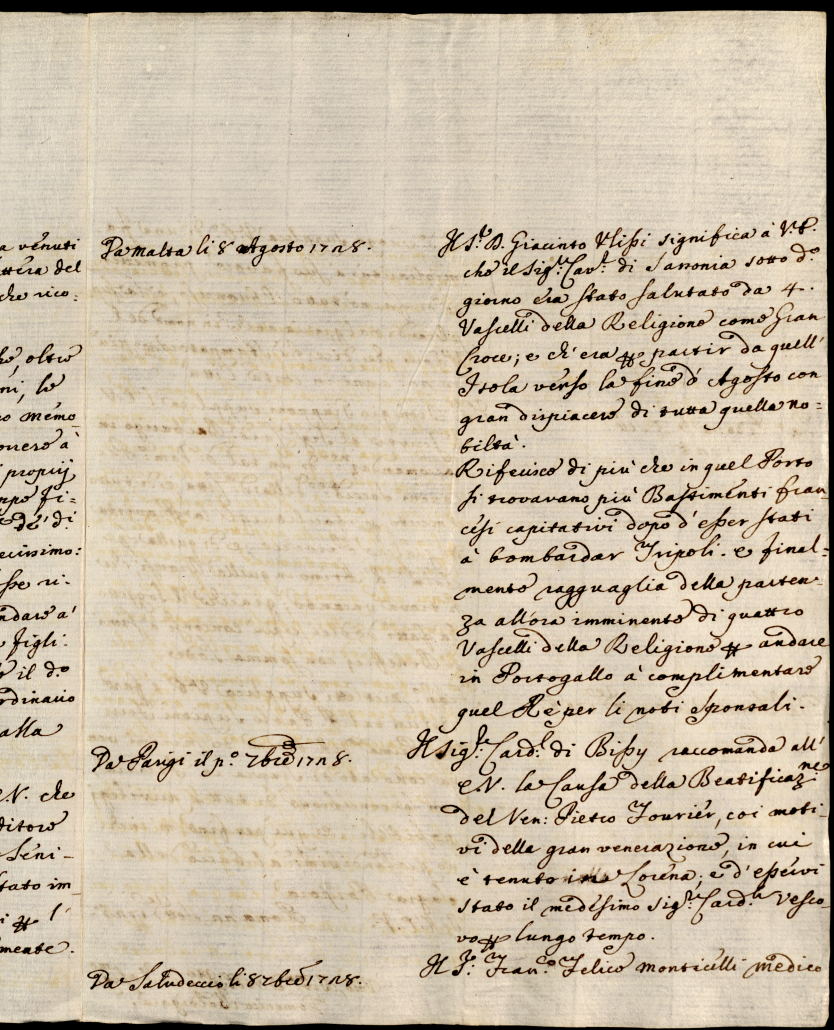 a venuti
ttera del
che rico:
he, oltre
ni, le
o memo
onere à
proprij
mpo fi:
de' di
ecissimo:
sse ri-
ndare a'
figli:
il d.o
rdinario
alla
N. che
ditore
Seni-
tato im-
i l'
mente.
Da Malta li 8 Agosto 1728.
Il S.r D. Giacinto Ulissi significa à V.E.
che il Sig.r Cav.r di Sassonia sotto d.o
giorno era stato salutato da 4.
Vascelli della Religione come Gran
Croce; e ch'era per partir da quell'
Isola verso la fine d'Agosto con
gran dispiacere di tutta quella no=
biltà.
Riferisce di più che in quel Porto
si trovavano più Bastimenti fran
cesi capitativi dopo d'esser stati
à bombardar Tripoli. e final=
mente ragguaglia della parten=
za all'ora imminente di quattro
Vascelli della Religione per andare
in Portogallo à complimentare
quel Rè per li noti sponsali.
Da Parigi il p.o 7bre 1728.
Il Sig.r Card.l di Bissy raccomanda all'
E.V. la Causa della Beatificaz.ne
del Ven: Pietro Fourier, coi moti-
vi della gran venerazione, in cui
è tenuto in Lorena; e d'esservi
stato il medesimo Sig.r Card.le Vesco
vo per lungo tempo.
Da Saludeccio li 8 7bre 1728.
Il S.r Fran.co Felice Monticelli Medico